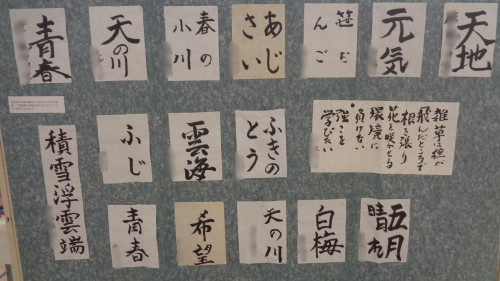 天地
元気
笹だ
んご
あじ
さい
春の
小川
天の川
青春
雑草は種が
飛んだところで
根を張り
花を咲かせる
環境に
負けない
強さを
学びたい
ふきの
とう
雲海
ふじ
積雪浮雲端
五月
晴れ
白梅
天の川
希望
青春